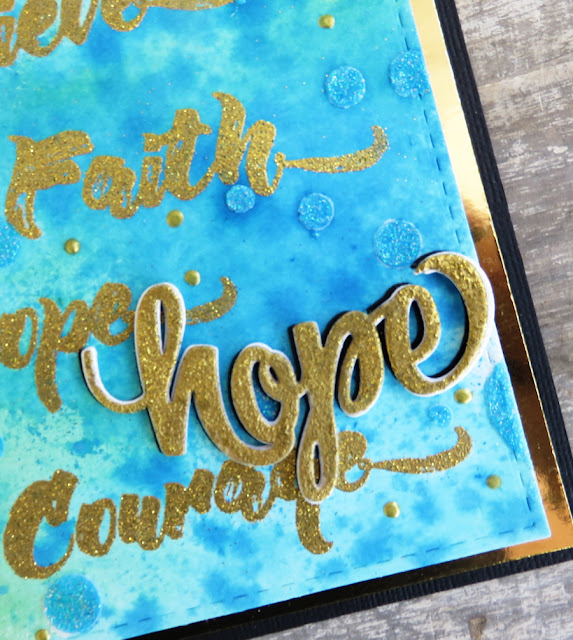 Faith
ope
hope
Courage